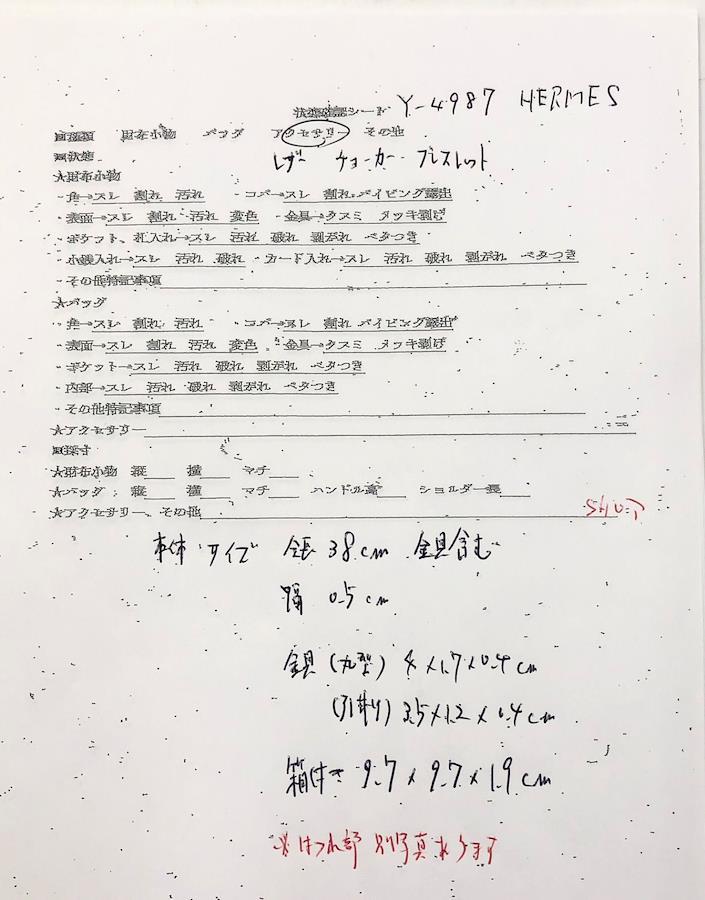 状態確認シート Y-4987 HERMES
■種類 財布小物 バッグ アクセサリー その他
■状態 レザー チョーカー・ブレスレット
★財布小物
・角→スレ 割れ 汚れ ・コバ→スレ 割れ パイピング露出
・表面→スレ 割れ 汚れ 変色 ・金具→クスミ メッキ剥げ
・ポケット、札入れ→スレ 汚れ 破れ 剥がれ ベタつき
・小銭入れ→スレ 汚れ 破れ ・カード入れ→スレ 汚れ 破れ 剥がれ ベタつき
・その他特記事項
★バッグ
・角→スレ 割れ 汚れ ・コバ→スレ 割れ パイピング露出
・表面→スレ 割れ 汚れ 変色 ・金具→クスミ メッキ剥げ
・ポケット→スレ 汚れ 破れ 剥がれ ベタつき
・内部→スレ 汚れ 破れ 剥がれ ベタつき
・その他特記事項
★アクセサリー
■採寸
★財布小物 縦 横 マチ
★バッグ 縦 横 マチ ハンドル高 ショルダー長
★アクセサリー、その他
本体 サイズ 全長 38cm 金具含む
幅 0.5cm
金具 (丸型) 4×1.7×0.4cm
3.5×1.2×0.4cm
箱付き 9.7×9.7×1.9cm
※ほつれ部 別写真